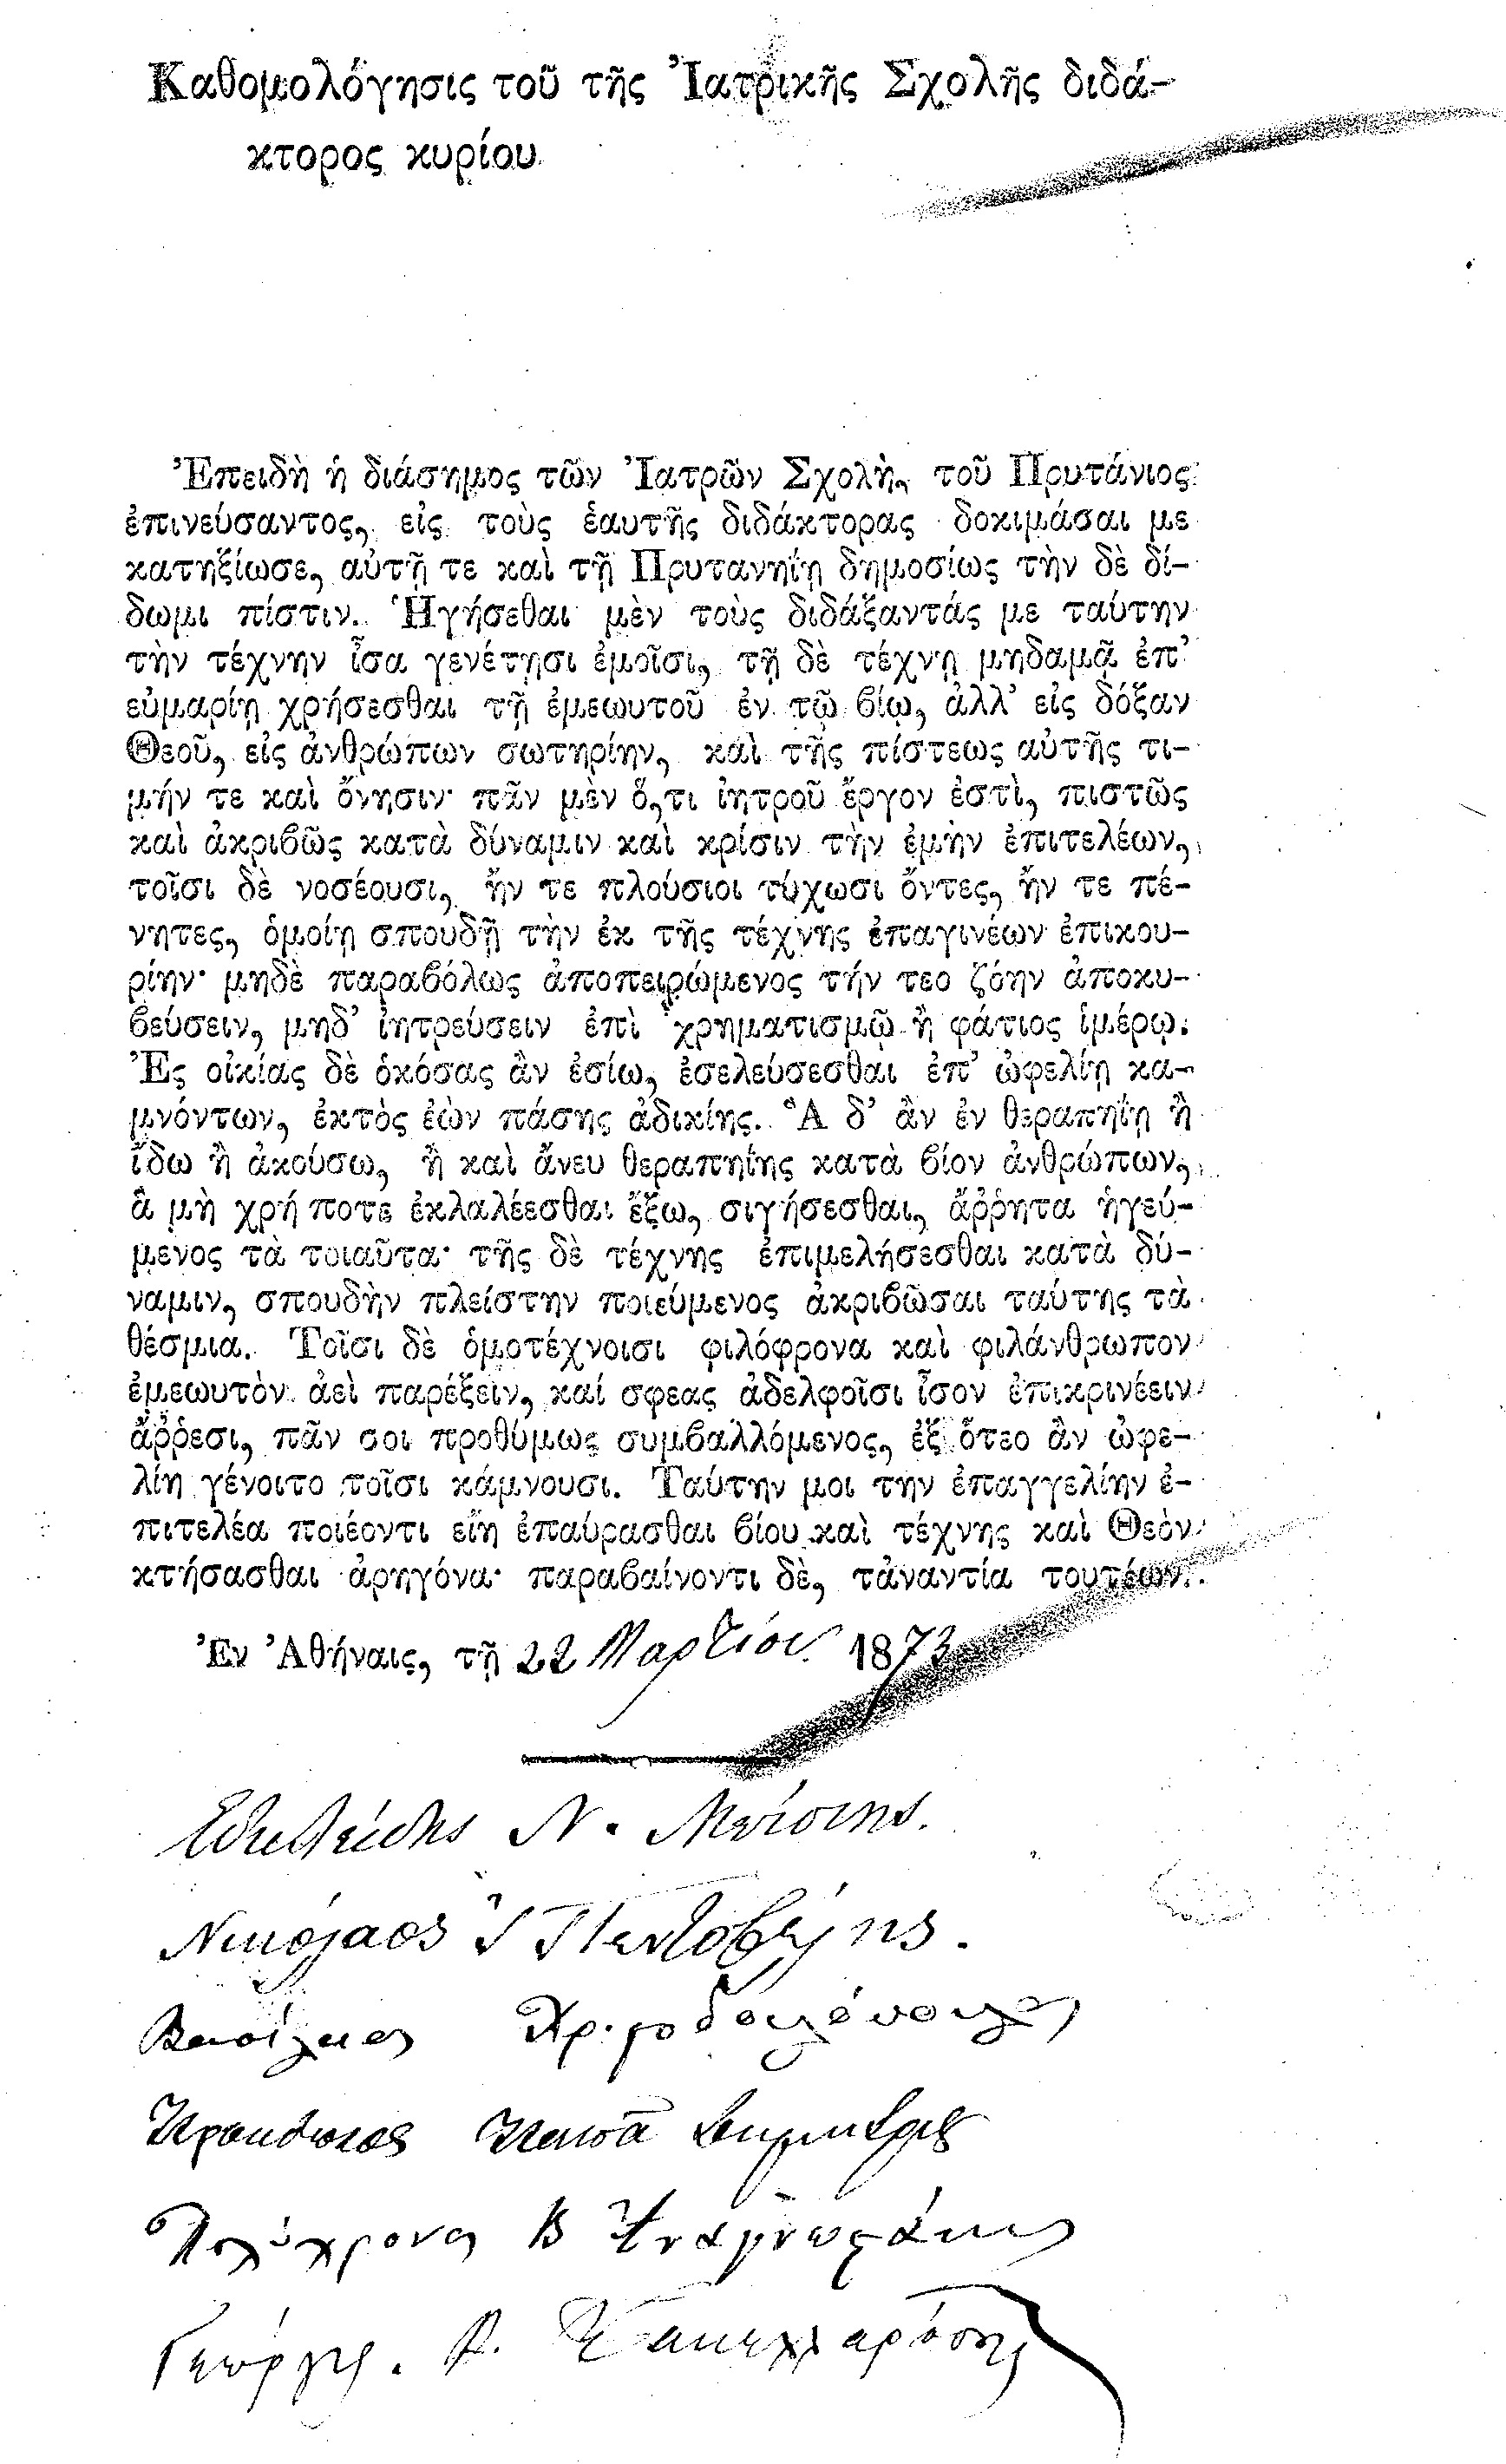 Καθομολόγησις τοῦ τῆς Ἰατρικῆς Σχολῆς διδά-
κτορος κυρίου
Ἐπειδὴ ἡ διάσημος τῶν Ἰατρῶν Σχολὴ, τοῦ Πρυτάνιος
ἐπινεύσαντος, εἰς τοὺς ἑαυτῆς διδάκτορας δοκιμάσαι με
κατηξίωσε, αὐτῇ τε καὶ τῇ Πρυτανηΐῃ δημοσίως τὴν δὲ δί-
δωμι πίστιν. Ἡγήσεθαι μὲν τοὺς διδάξαντάς με ταύτην
τὴν τέχνην ἶσα γενέτῃσι ἐμοῖσι, τῇ δὲ τέχνῃ μηδαμᾷ ἐπ’
εὐμαρίῃ χρήσεσθαι τῇ ἐμεωυτοῦ ἐν τῷ βίῳ, ἀλλ’ εἰς δόξαν
Θεοῦ, εἰς ἀνθρώπων σωτηρίην, καὶ τῆς πίστεως αὐτῆς τι-
μήν τε καὶ ὄνησιν· πᾶν μὲν ὅ,τι ἰητροῦ ἔργον ἐστὶ, πιστῶς
καὶ ἀκριβῶς κατὰ δύναμιν καὶ κρίσιν τὴν ἐμὴν ἐπιτελέων,
τοῖσι δὲ νοσέουσι, ἤν τε πλούσιοι τύχωσι ὄντες, ἤν τε πέ-
νητες, ὁμοίῃ σπουδῇ τὴν ἐκ τῆς τέχνης ἐπαγινέων ἐπικου-
ρίην· μηδὲ παραβόλως ἀποπειρώμενος τήν τεο ζόην ἀποκυ-
βεύσειν, μηδ’ ἰητρεύσειν ἐπὶ χρηματισμῷ ἢ φάτιος ἱμέρῳ.
Ἐς οἰκίας δὲ ὁκόσας ἂν ἐσίω, ἐσελεύσεσθαι ἐπ’ ὠφελίῃ κα-
μνόντων, ἐκτὸς ἐὼν πάσης ἀδικίης. Ἃ δ’ ἂν ἐν θεραπηΐῃ ἢ
ἴδω ἢ ἀκούσω, ἢ καὶ ἄνευ θεραπηΐης κατὰ βίον ἀνθρώπων,
ἃ μὴ χρή ποτε ἐκλαλέεσθαι ἔξω, σιγήσεσθαι, ἄῤῥητα ἡγεύ-
μενος τὰ τοιαῦτα· τῆς δὲ τέχνης ἐπιμελήσεσθαι κατὰ δύ-
ναμιν, σπουδὴν πλείστην ποιεύμενος ἀκριβῶσαι ταύτης τὰ
θέσμια. Τοῖσι δὲ ὁμοτέχνοισι φιλόφρονα καὶ φιλάνθρωπον
ἐμεωυτὸν ἀεὶ παρέξειν, καί σφεας ἀδελφοῖσι ἶσον ἐπικρινέειν
ἄῤῥεσι, πᾶν σοι προθύμως συμβαλλόμενος, ἐξ ὅτεο ἂν ὠφε-
λίη γένοιτο τοῖσι κάμνουσι. Ταύτην μοι τὴν ἐπαγγελίην ἐ-
πιτελέα ποιέοντι εἴη ἐπαύρασθαι βίου καὶ τέχνης καὶ Θεὸν
κτήσασθαι ἀρηγόνα· παραβαίνοντι δὲ, τἀναντία τουτέων.
Ἐν Ἀθήναις, τῇ 22 Μαρτίου 1873
Ν.
Νικόλαος
Βασίλειος Χριστοδουλόπουλος
Παπᾶ
Πολύχρονος Β
Γεώργι.